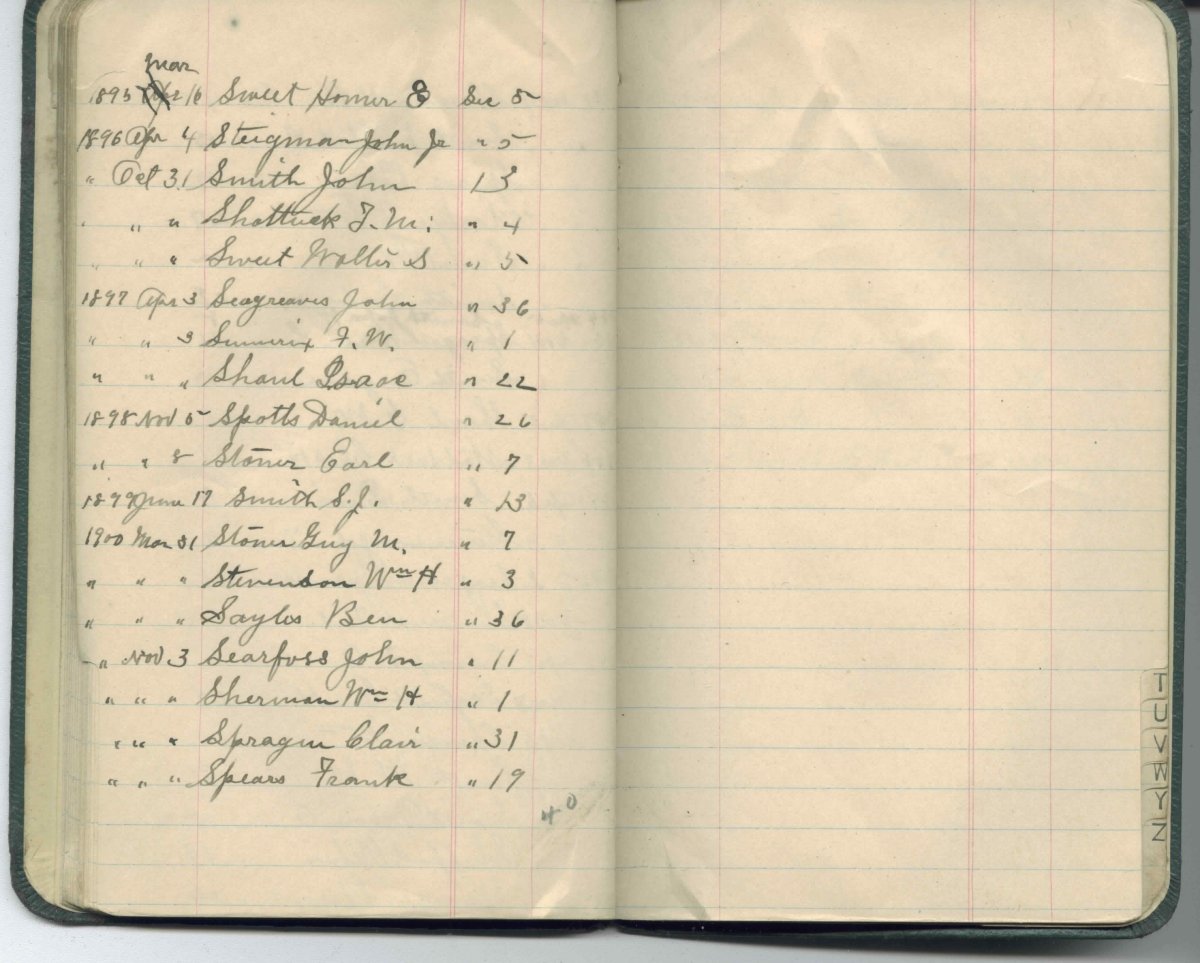 Mar
1895 Apr 16 Sweet Homer E Sec 5
1896 Apr 4 Steigman John Jr " 5
" Oct 31 Smith John 13
" " " Shattuck F. M. " 4
" " " Sweet Walter S " 5
1897 Apr 3 Seagreaves John " 36
" " 3 F. W. " 1
" " " Shaul Isaac " 22
1898 Nov 5 Spotts Daniel " 26
" " 8 Stoner Earl " 7
1899 June 17 Smith S. J. " 13
1900 Mar 31 Stoner Guy M. " 7
" " " Stevenson Wm H " 3
" " " Sayles Ben " 36
" Nov 3 Searfoss John " 11
" " " Sherman Wm H " 1
" " " Sprague Clair " 31
" " " Spears Frank " 19
40
T
U
V
W
Y
Z